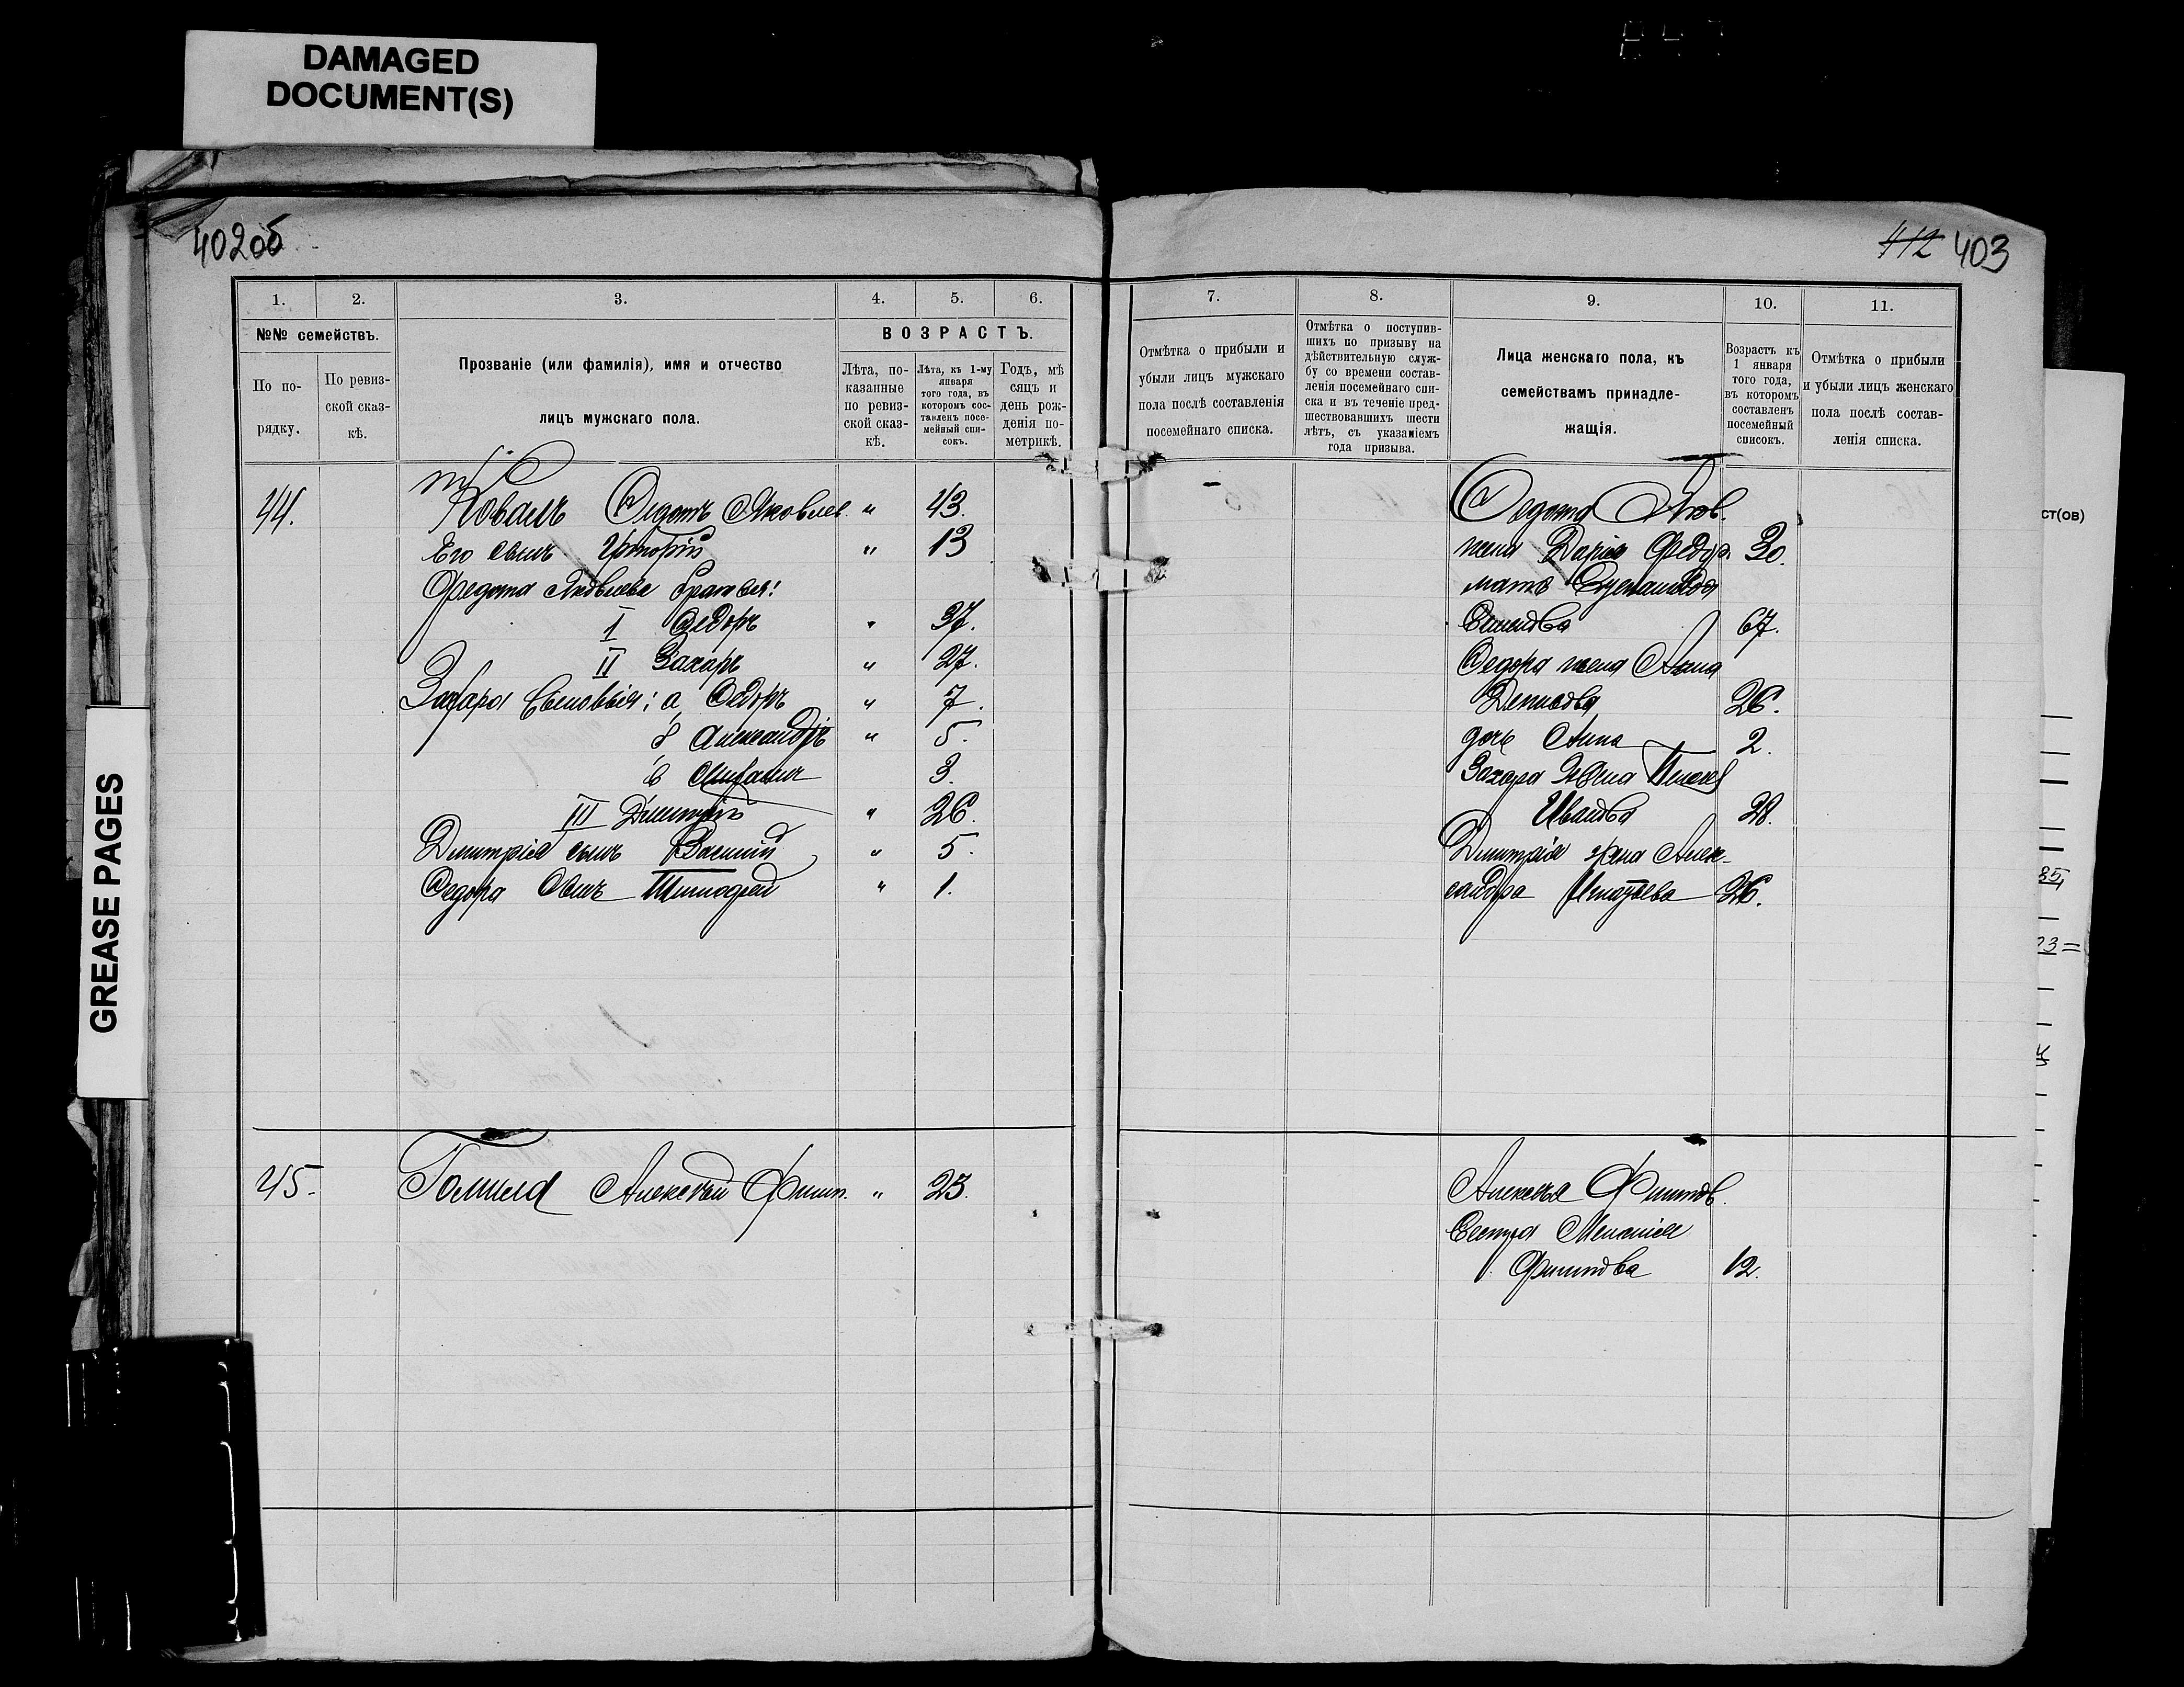 DAMAGED
DOCUMENT(S)
GREASE PAGES
402об
1.
2.
3.
4.
5.
6.
№№ семействъ.
По по-
рядку.
По ревиз-
ской сказ-
кѣ.
Прозваніе (или фамилія), имя и отчество
лицъ мужскаго пола.
ВОЗРАСТЪ.
Лѣта, по-
казанные
по ревиз-
ской сказ-
кѣ.
Лѣта, къ 1-му
января
того года, въ
которомъ сос-
тавленъ посе-
мейный спи-
сокъ.
Годъ, мѣ
сяцъ и
день рож-
денія по-
метрикѣ.
44. Коваль Федотъ Яковлев. " 43.
Его сынъ Григорій " 13
Федота Яковлева братья:
I Федоръ " 37.
II Захаръ " 27.
Захара сыновья: а, Федоръ " 7.
б Александръ " 5.
в 3.
III Дмитрій " 26.
Дмитрія сынъ Василій " 5.
Федора Сынъ Тимофей " 1.
45. Алексѣй Филип. " 23.
412 403
7.
8.
9.
10.
11.
Отмѣтка о прибыли и
убыли лицъ мужскаго
пола послѣ составленія
посемейнаго списка.
Отмѣтка о поступив-
шихъ по призыву на
дѣйствительную служ-
бу со времени состав-
ленія посемейнаго спи-
ска и въ теченіе пред-
шествовавшихъ шести
лѣтъ, съ указаніемъ
года призыва.
Лица женскаго пола, къ
семействамъ принадле-
жащія.
Возрастъ къ
1 января
того года,
въ которомъ
составленъ
посемейный
списокъ.
Отмѣтка о прибыли
и убыли лицъ женскаго
пола послѣ состав-
ленія списка.
Федота Яков.
жена Дарія Федор. 30.
мать
67.
Федора жена Анна
Денисова 26.
дочь Анна 2.
Захара жена
Иванова 28.
Дмитрія жена Алек-
сандра Игнатьева 26.
Алексѣя Филипов.
Сестра Меланія
Филипова 12.
ст(ов)